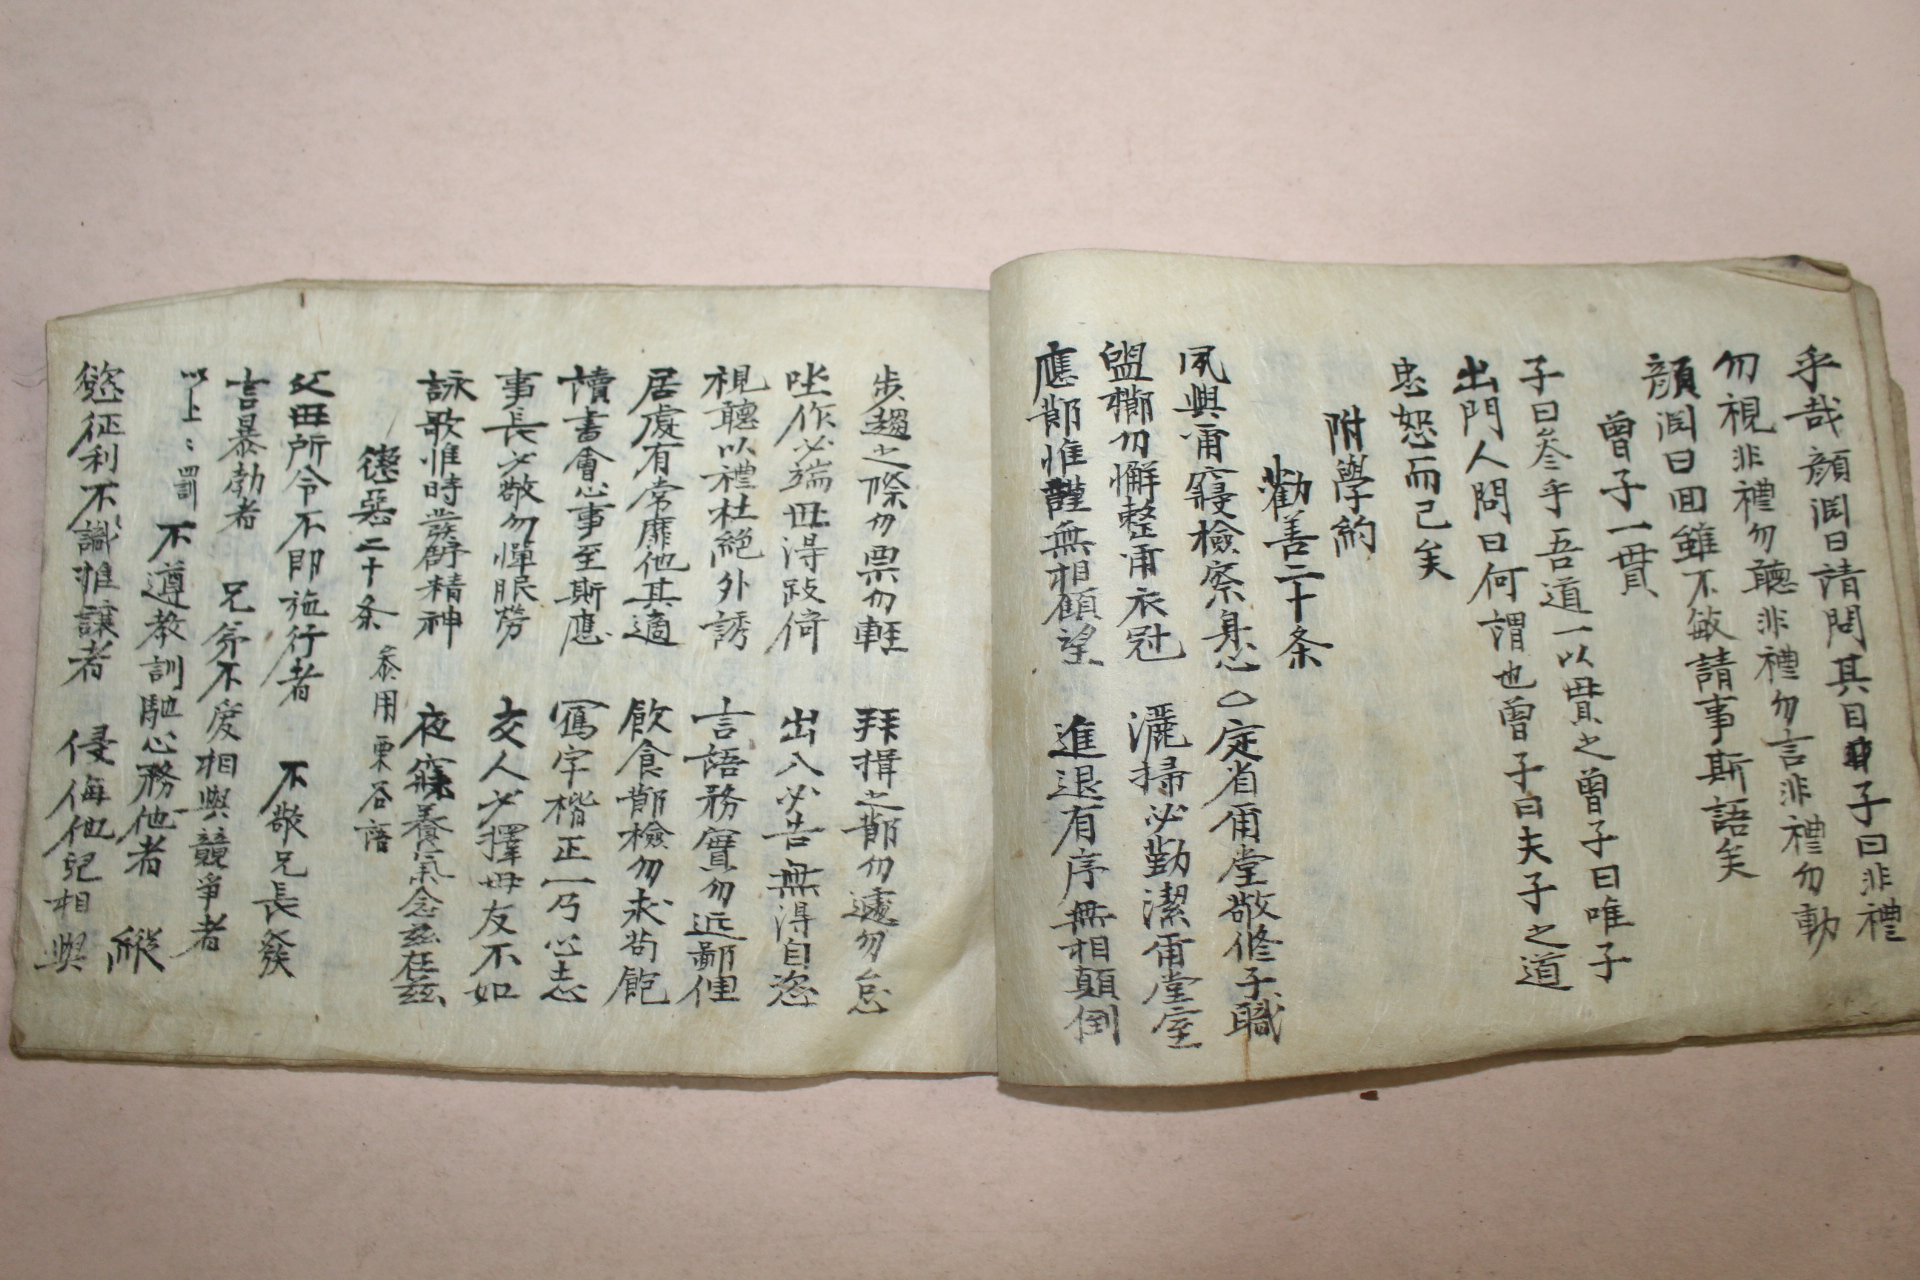 乎哉顔渊曰請問其目子曰非禮
勿視非禮勿聽非禮勿言非禮勿動
顔渊曰回雖不敏請事斯語矣
曾子一貫
子曰叅乎吾道一以貫之曾子曰唯子
出門人問曰何謂也曾子曰夫子之道
忠恕而已矣
附學約
勸善二十条
夙興甭寢檢察身心 定省甭堂敬修子職
盥櫛勿懈整甭衣冠 灑掃必勤潔甭堂室
應節惟謹無相顧望 進退有序無相顛倒
步趨之際勿票勿輕 拜揖之節勿遽勿怠
坐作必端毋得跛倚 出入必告無得自恣
視聽以禮杜絕外誘 言語務實勿近鄙俚
居處有常靡他其適 飲食節檢勿求苟飽
讀書會心事至斯應 寫字楷正一乃心志
事長必敬勿憚服勞 交人必擇毋友不如
詠歌惟時發舒精神 夜寐養氣念兹在兹
德惡二十条 叅用栗谷語
父母所令不即施行者 不敬兄長發
言暴勃者 兄弟不度相與競爭者
以上罰 不遵教訓馳心務他者 縱
慾征利不識推讓者 侵侮他兒相與